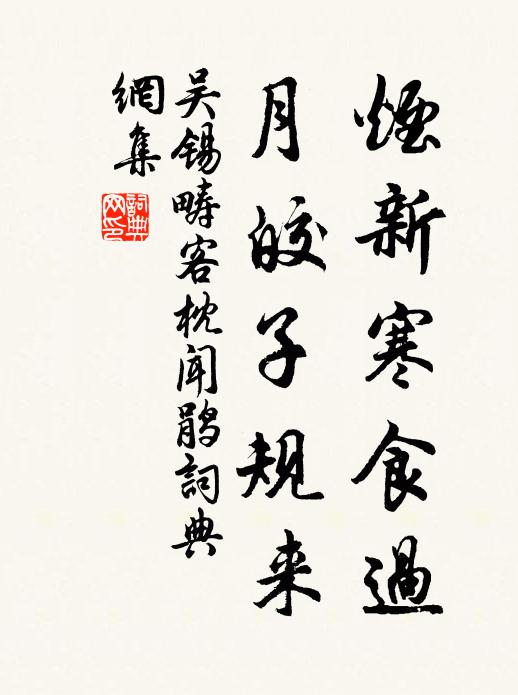 煙新寒食過
月皎子規来
吴锡畴客枕闻鹃詞典
網集
詞典网印